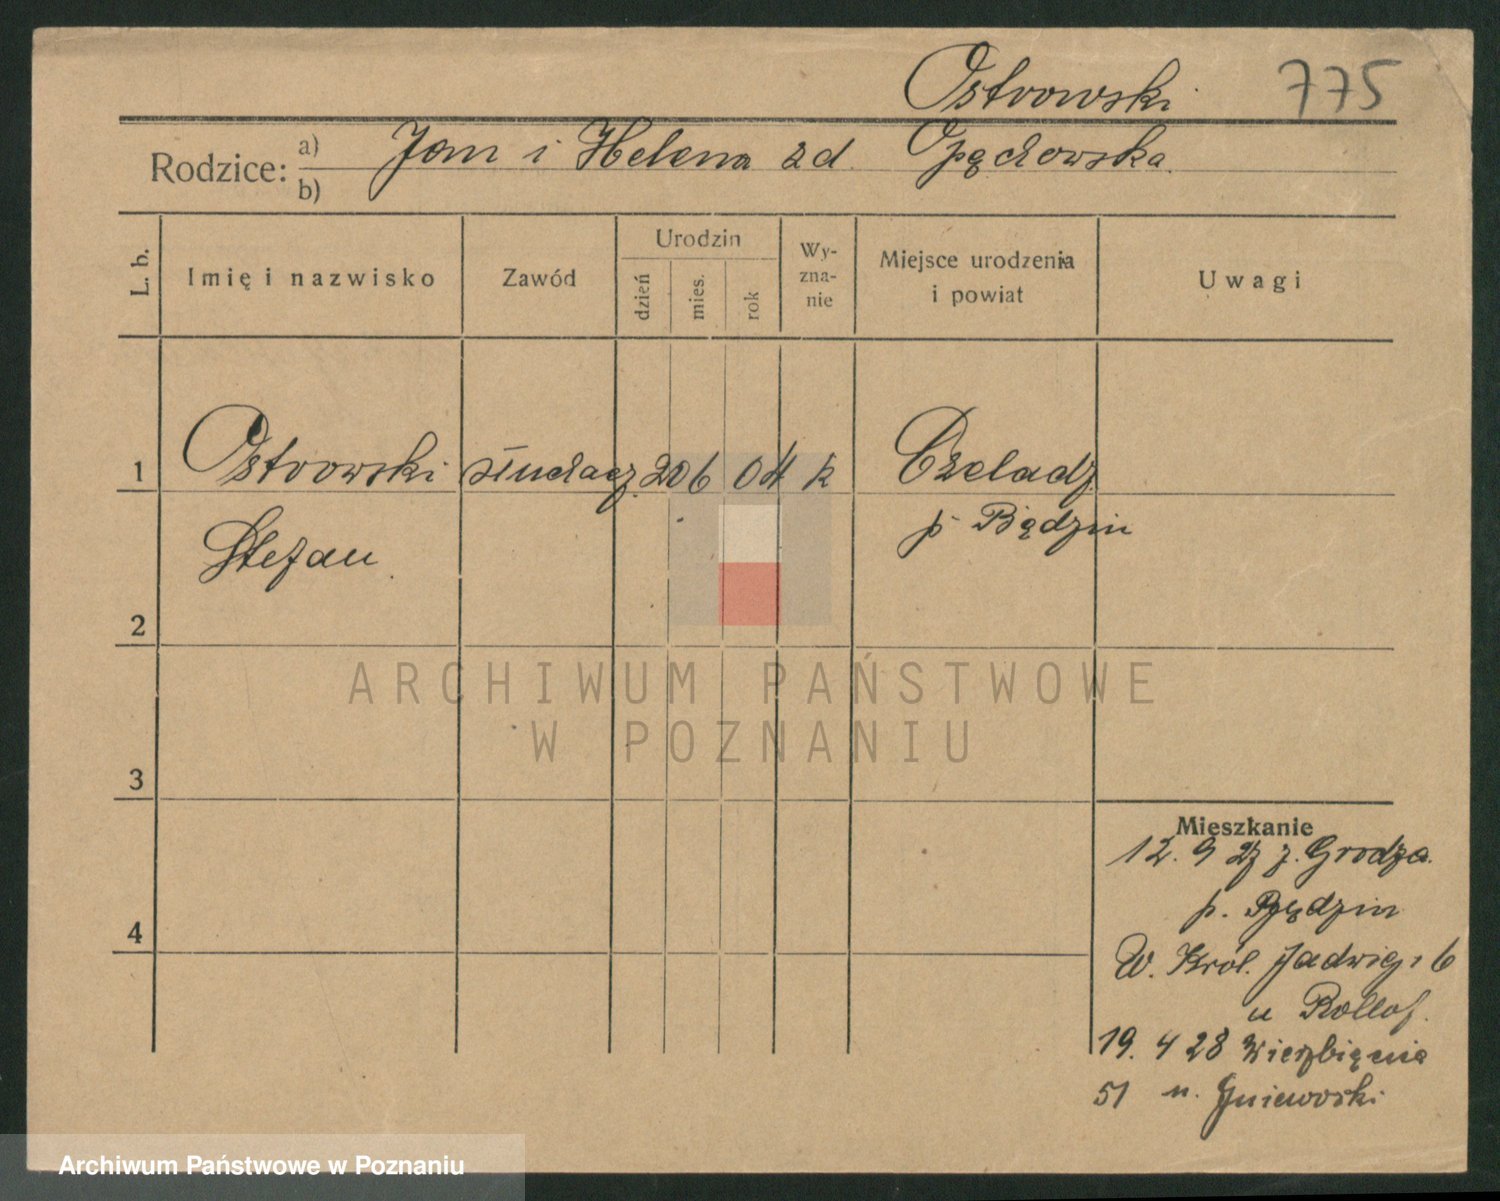 Ostrowski 775
Rodzice: a) Jan i Helena zd. Opęchowska
b)
L. b. Imię i nazwisko Zawód Urodzin dzień mies. rok Wyznanie Miejsce urodzenia i powiat Uwagi
1 Ostrowski słuchacz 20 6 04 k Czeladz
Stefan p. Będzin
2
3
4
Mieszkanie
12. 9 27 z. Grodza
p. Będzin
W. Król. Jadwigi 6
u
19. 4 28 Wierzbięcice
51 u. Gniewoski
ARCHIWUM PAŃSTWOWE
W POZNANIU
Archiwum Państwowe w Poznaniu